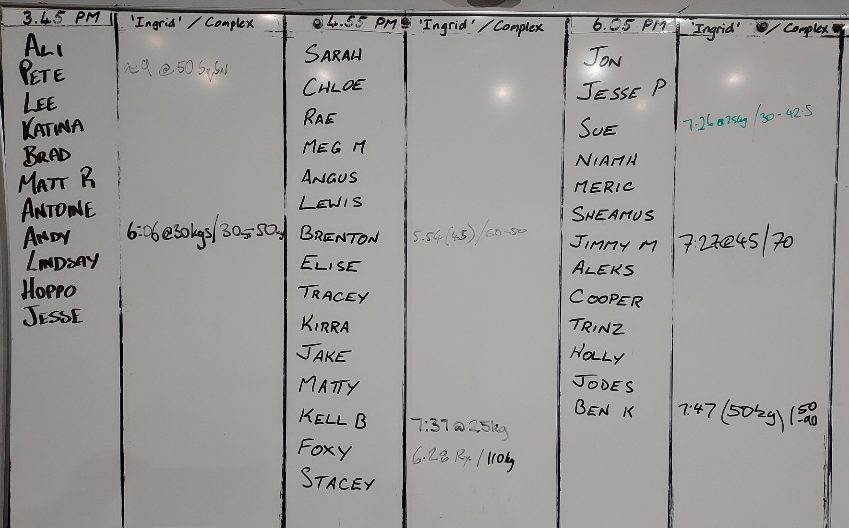 3.45 PM 'Ingrid' / Complex
Ali
Pete @ 50
Lee
Katina
Brad
Matt R
Antoine
Andy 6:06@30kgs/30-50kg
Lindsay
Hoppo
Jesse
4.55 PM 'Ingrid' / Complex
Sarah
Chloe
Rae
Meg M
Angus
Lewis
Brenton 5.54 (45) / 60-50
Elise
Tracey
Kirra
Jake
Matty
Kell B 7:37@25kg
Foxy 6.28 Rx / 110kg
Stacey
6.05 PM 'Ingrid' / Complex
Jon
Jesse P
Sue 7.26@25kg / 30-42.5
Niamh
Meric
Sheamus
Jimmy M 7:27@45/70
Aleks
Cooper
Trinz
Holly
Jodes
Ben K 7:47 (50kg) / 50-90